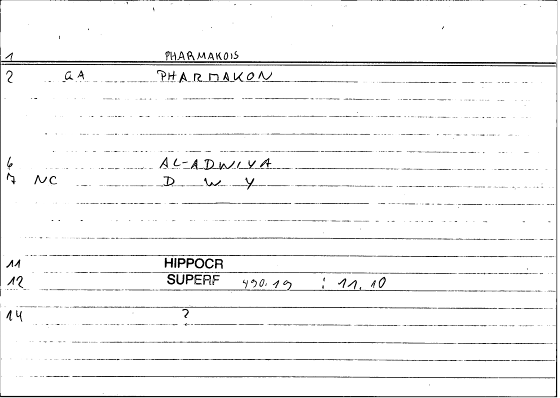 1 PHARMAKOIS
2 GA PHARMAKON
6 AL-ADWIYA
7 NC D W Y
11 HIPPOCR
12 SUPERF 490.19 : 11.10
14 ?